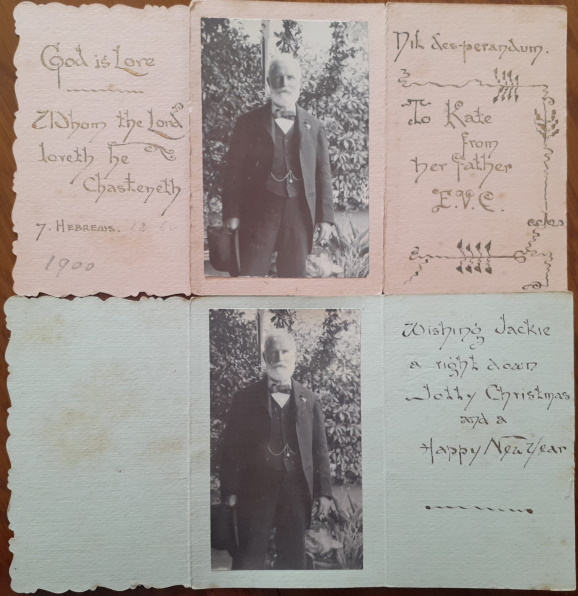 God is Love
Whom the Lord
loveth he
Chasteneth
7. HEBREWS. 12. 6.
1900
Nil des-perandum.
To Kate
from
her father
E.V.C.
Wishing Jackie
a right down
Jolly Christmas
and a
Happy New Year